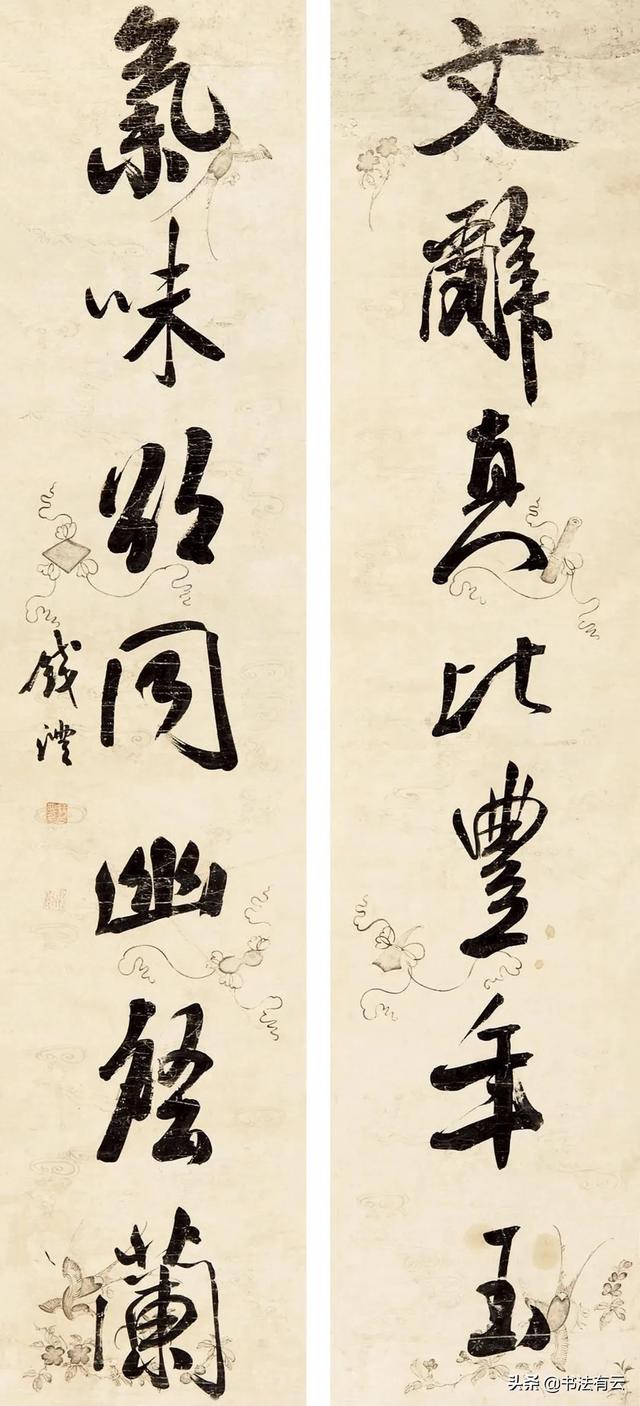 文辭真比豐年玉
氣味同幽蘭
錢灃
头条 @书法有云